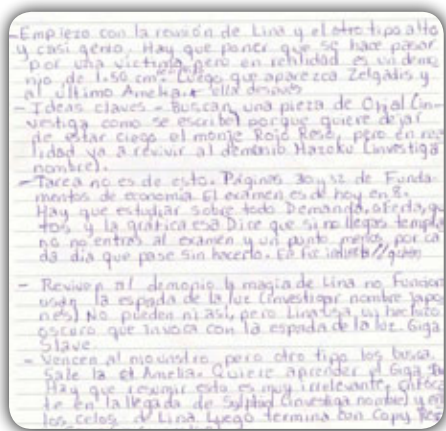 - Empiezo con la reunión de Lina y el otro tipo alto
y casi genio. Hay que poner que se hace pasar
por una víctima, pero en realidad es un demo
nio de 1.50 cm. Luego que aparezca Zelgadis y
al último Amelia. ella después
- Ideas claves - Buscan una pieza de (in-
vestiga como se escribe) porque quiere dejar
de estar ciego el monje Rojo Rezo, pero en rea
lidad va a revivir al demonio Mazoku (investiga
nombre).
- Tarea no es de esto. Páginas 30 y 32 de Funda-
mentos de economía El examen es de hoy en 8.
Hay que estudiar sobre todo Demanda, oferta, g
tos y la gráfica esa Dice que si no llegas tempra
no no entras al examen y un punto menos por ca
da día que pase sin hacerlo. indirecto//guión
- Reviven al demonio la magia de Lina no funcion
usan la espada de la luz (investigar nombre japo
nés) No pueden ni así, pero Lina usa un hechizo
oscuro que invoca con la espada de la luz. Giga
Slave
- Vencen al mounstro, pero otro tipo los busca.
Sale la Amelia. Quiere aprender el Giga
Hay que resumir esto es muy irrelevante, enfoca
te en la llegada de (investiga nombre) y en
los celos de Lina. Luego termina con Copy Rez